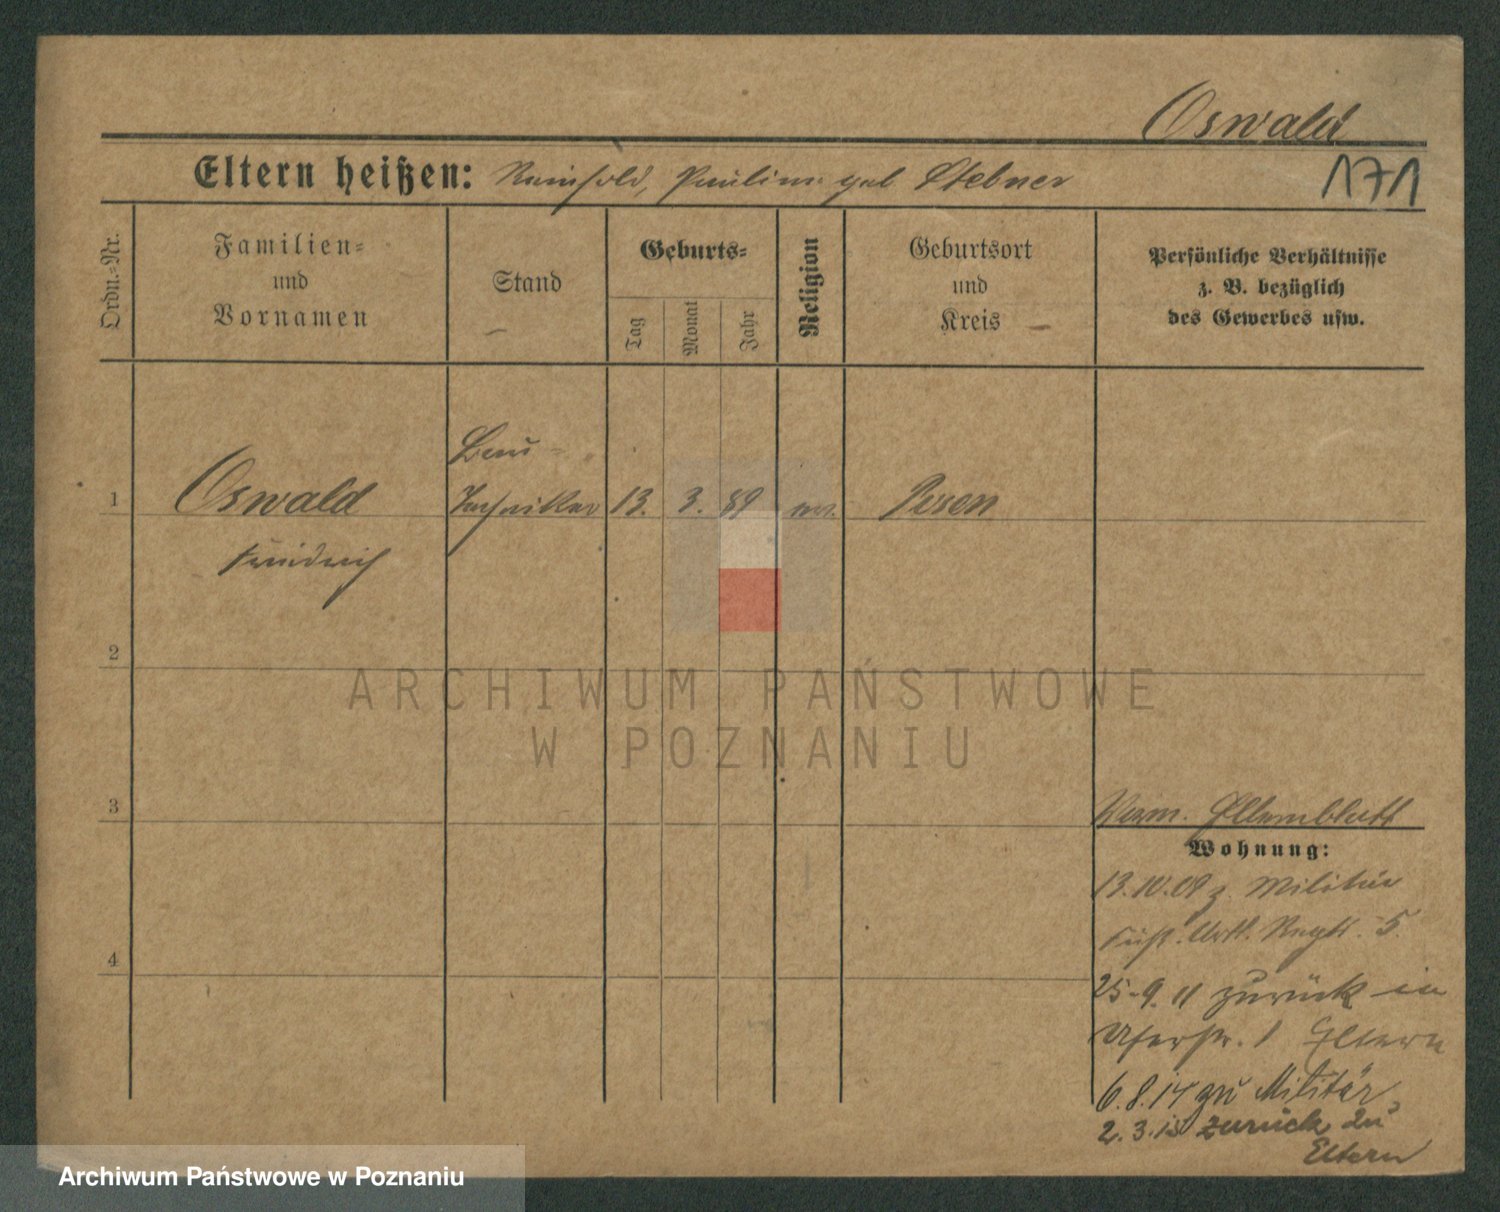 Oswald
171
Eltern heißen: Reinhold, Pauline geb Stebner
Ordn.=Nr.
Familien=
und
Vornamen
Stand
Geburts=
Tag
Monat
Jahr
Religion
Geburtsort
und
Kreis
Persönliche Verhältnisse
z. B. bezüglich
des Gewerbes usw.
Bau=
1 Oswald Techniker 13. 3. 89 ev. Posen
Friedrich
2
3
4
Elternblatt
Wohnung:
13.10.09 z. Militär
Art. Regt. 5.
25.9.11 zurück in
Uferstr. 1 Eltern
6.8.14 zu Militär
2.3.15 zurück zu
Eltern
ARCHIWUM PAŃSTWOWE
W POZNANIU
Archiwum Państwowe w Poznaniu